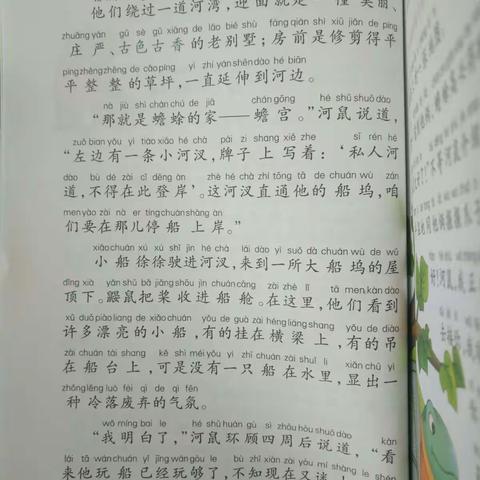 他们绕过一道河湾，迎面就是一幢美丽、
zhuāng yán gǔ sè gǔ xiāng de lǎo bié shù fáng qián shì xiū jiǎn de píng
庄严、古色古香的老别墅；房前是修剪得平
píng zhěng zhěng de cǎo píng yì zhí yán shēn dào hé biān
平整整的草坪，一直延伸到河边。
nà jiù shì chán chú de jiā chán gōng hé shǔ shuō dào
“那就是蟾蜍的家——蟾宫。”河鼠说道，
zuǒ bian yǒu yì tiáo xiǎo hé chà pái zi shang xiě zhe sī rén hé
“左边有一条小河汊，牌子上写着：‘私人河
dào bù dé zài cǐ dēng àn zhè hé chà zhí tōng tā de chuán wù zán
道，不得在此登岸’。这河汊直通他的船坞，咱
men yào zài nà er tíng chuán shàng àn
们要在那儿停船上岸。”
xiǎo chuán xú xú shǐ jìn hé chà lái dào yì suǒ dà chuán wù de wū
小船徐徐驶进河汊，来到一所大船坞的屋
dǐng xià yǎn shǔ bǎ jiǎng shōu jìn chuán cāng zài zhè lǐ tā men kàn dào
顶下。鼹鼠把桨收进船舱。在这里，他们看到
xǔ duō piào liang de xiǎo chuán yǒu de guà zài héng liáng shang yǒu de diào
许多漂亮的小船，有的挂在横梁上，有的吊
zài chuán tái shang kě shì méi yǒu yì zhī chuán zài shuǐ lǐ xiǎn chū yì
在船台上，可是没有一只船在水里，显出一
zhǒng lěng luò fèi qì de qì fēn
种冷落废弃的气氛。
wǒ míng bai le hé shǔ huán gù sì zhōu hòu shuō dào kàn
“我明白了，”河鼠环顾四周后说道，“看
lái tā wán chuán yǐ jīng wán gòu le bù zhī xiàn zài yòu mí shàng le shén
来他玩船已经玩够了，不知现在又迷上